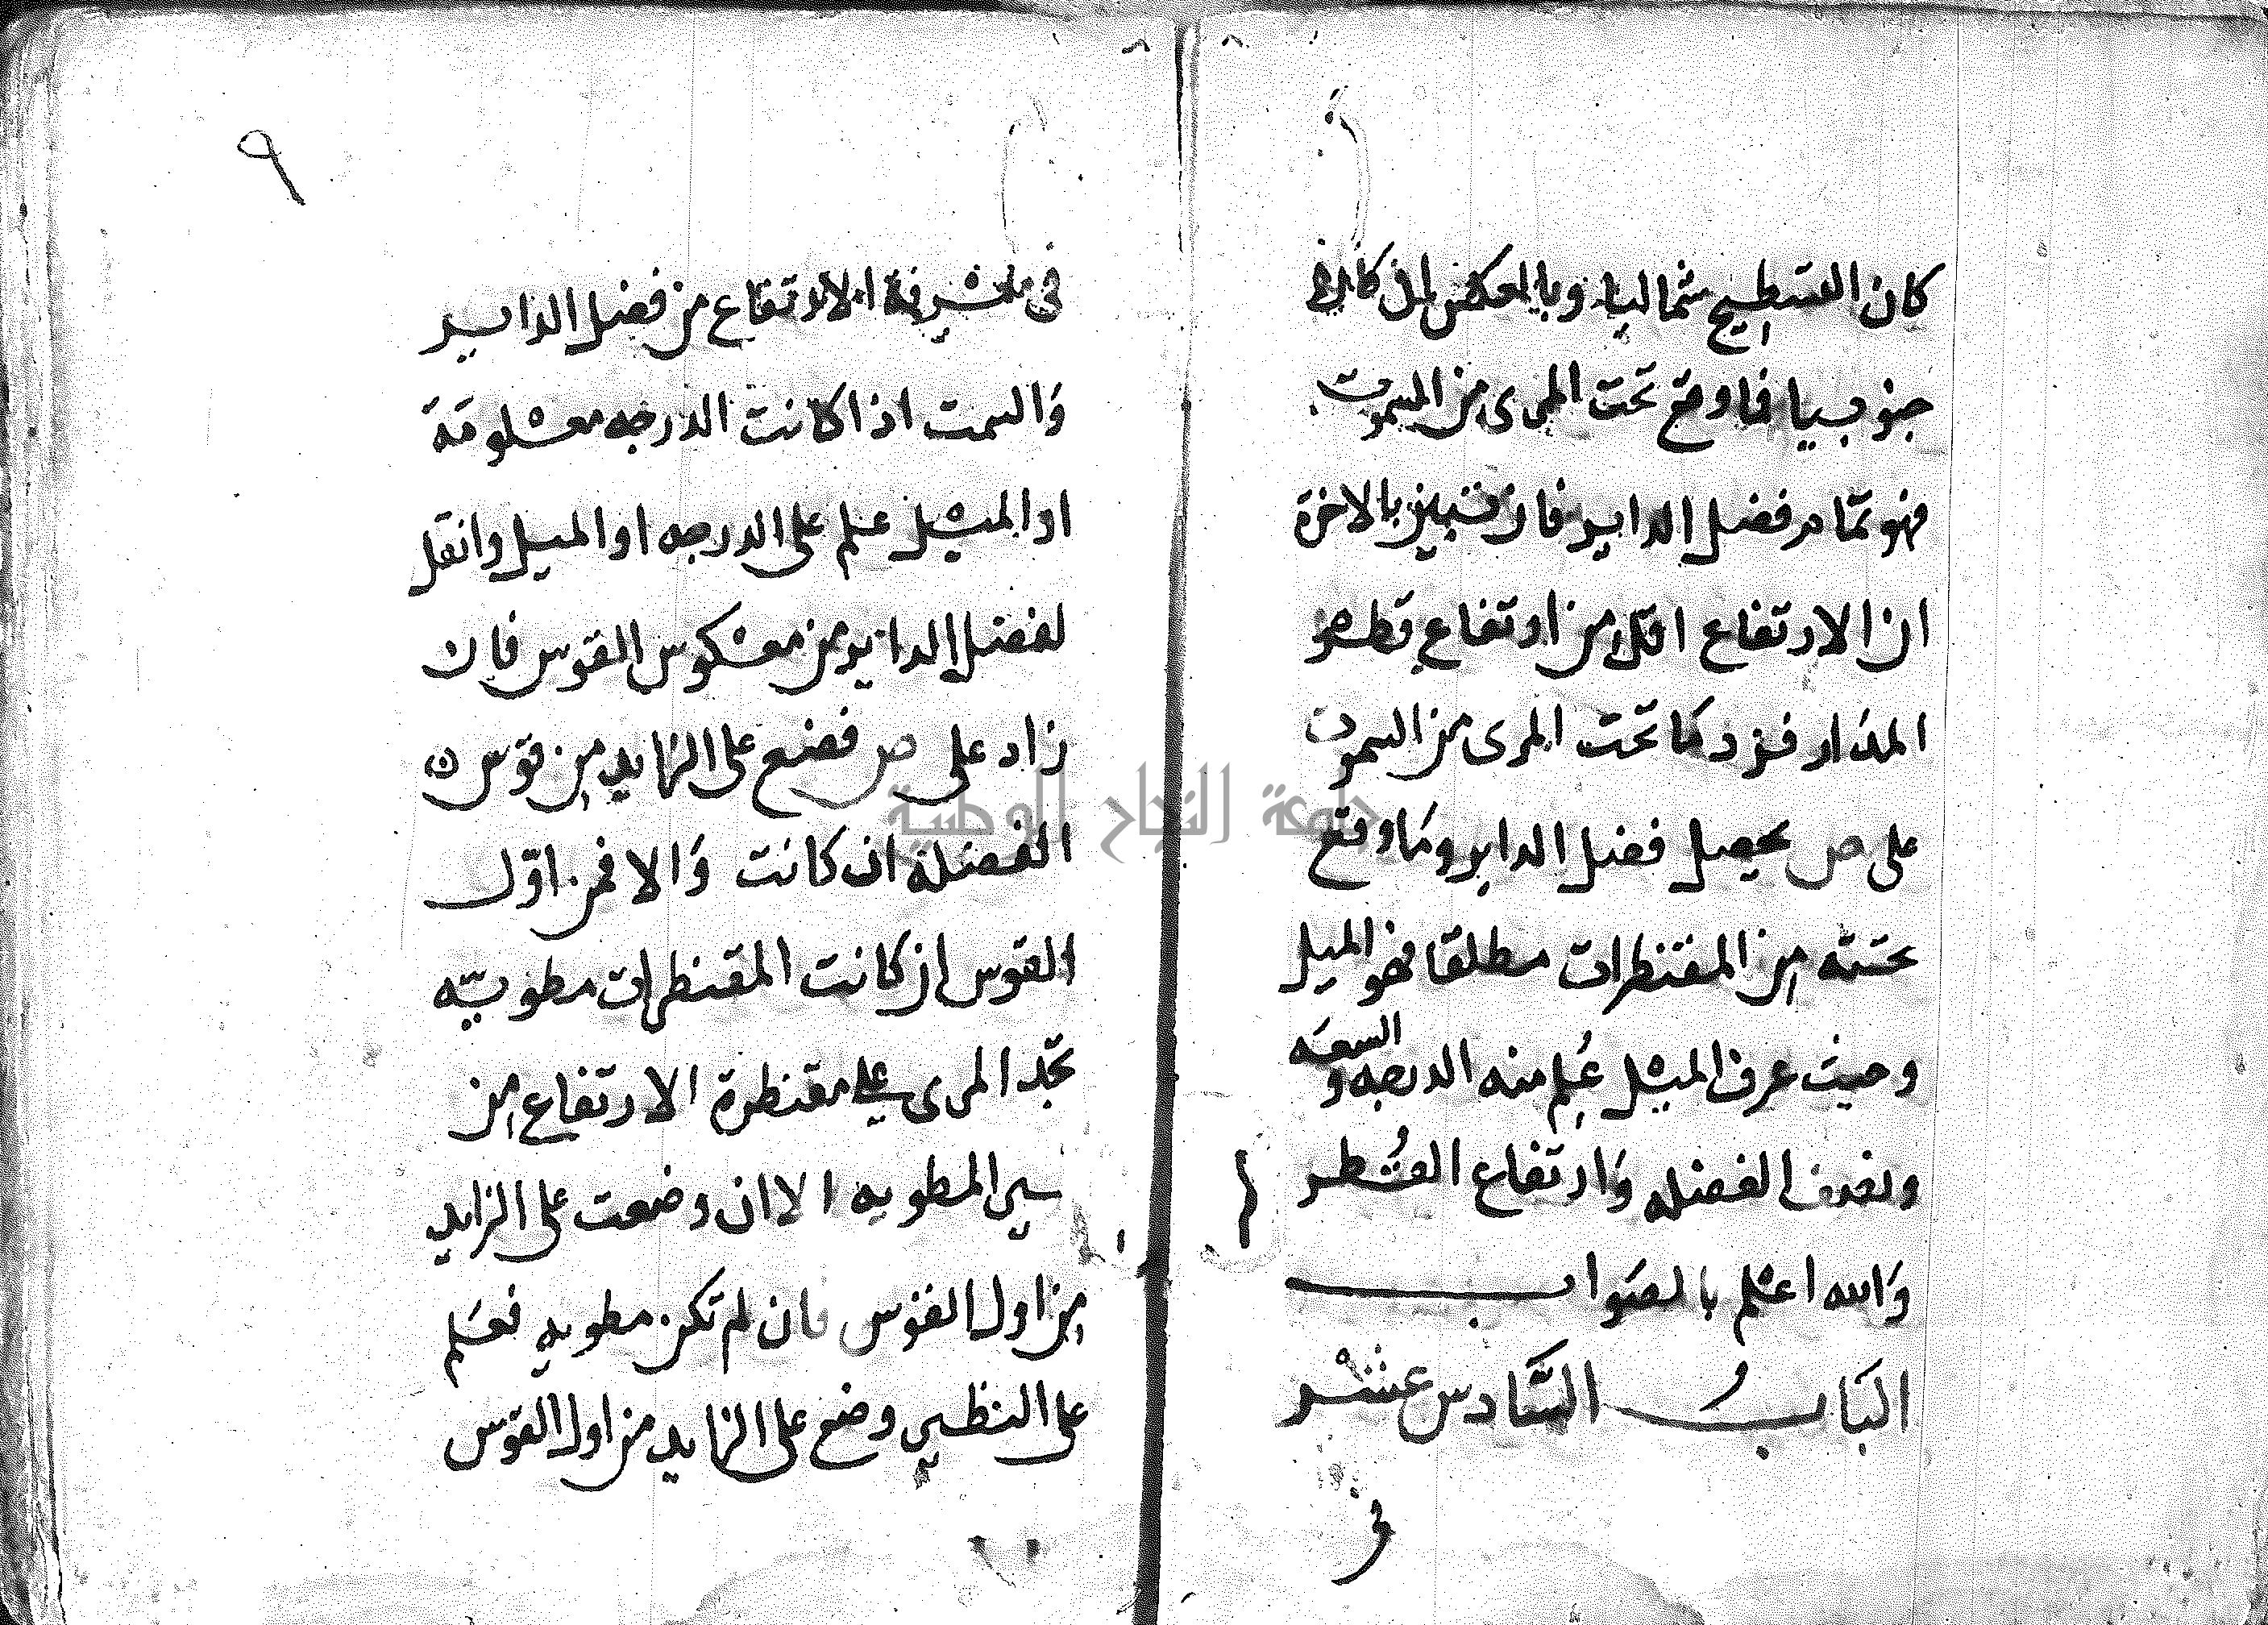 كان التسطيح شماليا وبالعكس ان كان
جنوبيا فما وقع تحت المرى من السموت
فهو تمام فضل الداير فان تبين بالاخرة
ان الارتفاع اقل من ارتفاع قطر
المدار فزد كما تحت المرى من السموت
على ص يحصل فضل الداير وما وقع
تحته من المقنطرات مطلقا فهو الميل
وحيث عرف الميل علم منه الدرجه والسعه
ونصف الفضله وارتفاع القطر
والله اعلم بالصواب
الباب السادس عشر
في
٩
في معرفة الارتفاع من فضل الداير
والسمت اذا كانت الدرجه معلومة
او الميل علم على الدرجه او الميل وانقل
لفضل الداير من معكوس القوس فان
زاد على ص فضع على الزايد من قوس
الفضلة ان كانت والا فمن اول
القوس ان كانت المقنطرات مطويه
تجد المرى على مقنطرة الارتفاع من
المطويه الا ان وضعت على الزايد
من اول القوس فان لم تكن مطويه فعلم
على النظير وضع على الزايد من اول القوس
جامعة النجاح الوطنية